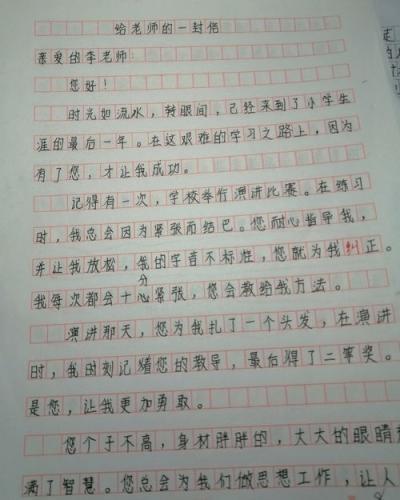 给老师的一封信
亲爱的李老师：
您好！
时光如流水，转眼间，已经来到了小学生
涯的最后一年。在这艰难的学习之路上，因为
有了您，才让我成功。
记得有一次，学校举行演讲比赛。在练习
时，我总会因为紧张而结巴。您耐心指导我，
并让我放松，我的字音不标准，您就为我纠正。
我每次都会十分心紧张，您会教给我方法。
演讲那天，您为我扎了一个头发，在演讲
时，我时刻记着您的教导，最后得了二等奖。
是您，让我更加勇敢。
您个子不高，身材胖胖的，大大的眼睛
满了智慧。您总会为我们做思想工作，让人